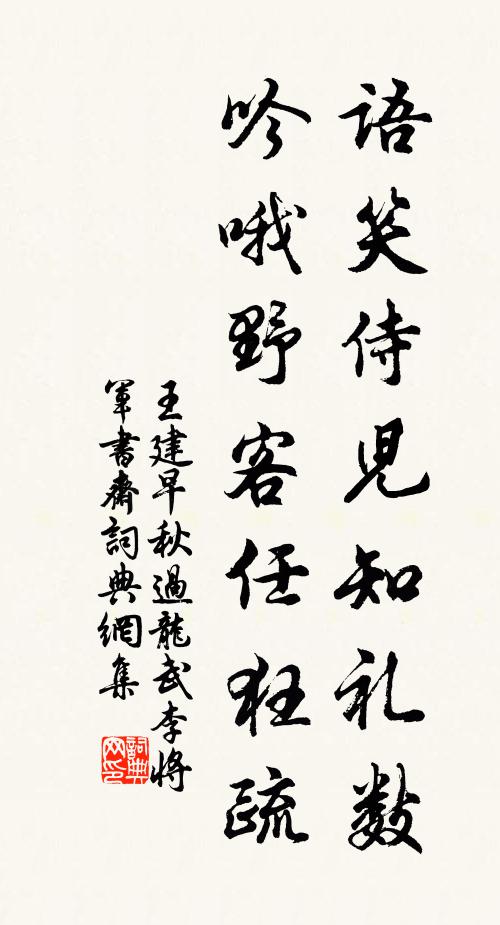 語笑侍児知礼數
吟哦野客任狂疏
王建早秋過龍武李將
軍書齋詞典網集
詞典網印